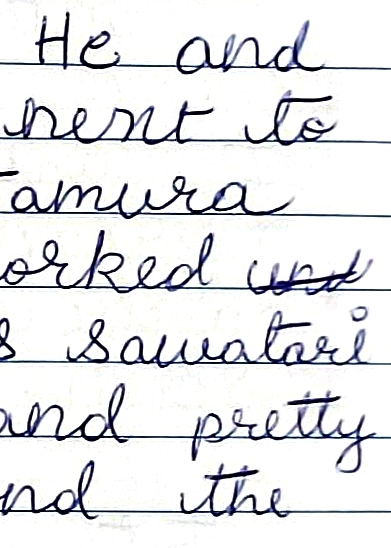 He and
nent to
amura
orked
s sawatari
and pretty
nd the